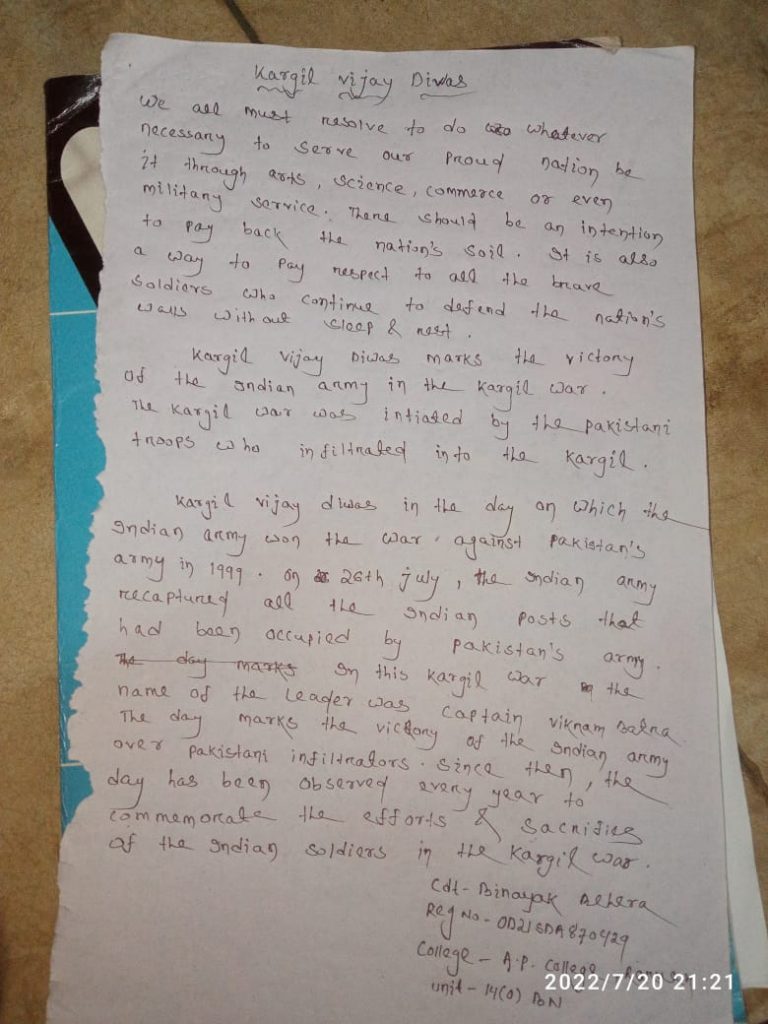 Kargil Vijay Diwas
We all must resolve to do whatever
necessary to serve our proud nation be
it through arts, science, commerce or even
military service. There should be an intention
to pay back the nation's soil. It is also
a way to pay respect to all the brave
soldiers who continue to defend the nation's
walls without sleep & rest.
Kargil Vijay Diwas marks the victory
of the Indian army in the Kargil war.
The Kargil war was intiated by the pakistani
troops who infiltrated into the Kargil.
Kargil vijay diwas in the day on which the
Indian army won the war against Pakistan's
army in 1999. On 26th july, the Indian army
recaptured all the Indian posts that
had been occupied by pakistan's army.
The day marks In this Kargil war the
name of the Leader was captain vikram Batra
The day marks the victory of the Indian army
over pakistani infiltrators. Since then, the
day has been observed every year to
commemorate the efforts & sacrifies
of the Indian soldiers in the Kargil war.
Cdt- Binayak Behera
Reg No - OD21SDA870429
College - A.P. College
unit - 14(O) BN
2022/7/20 21:21